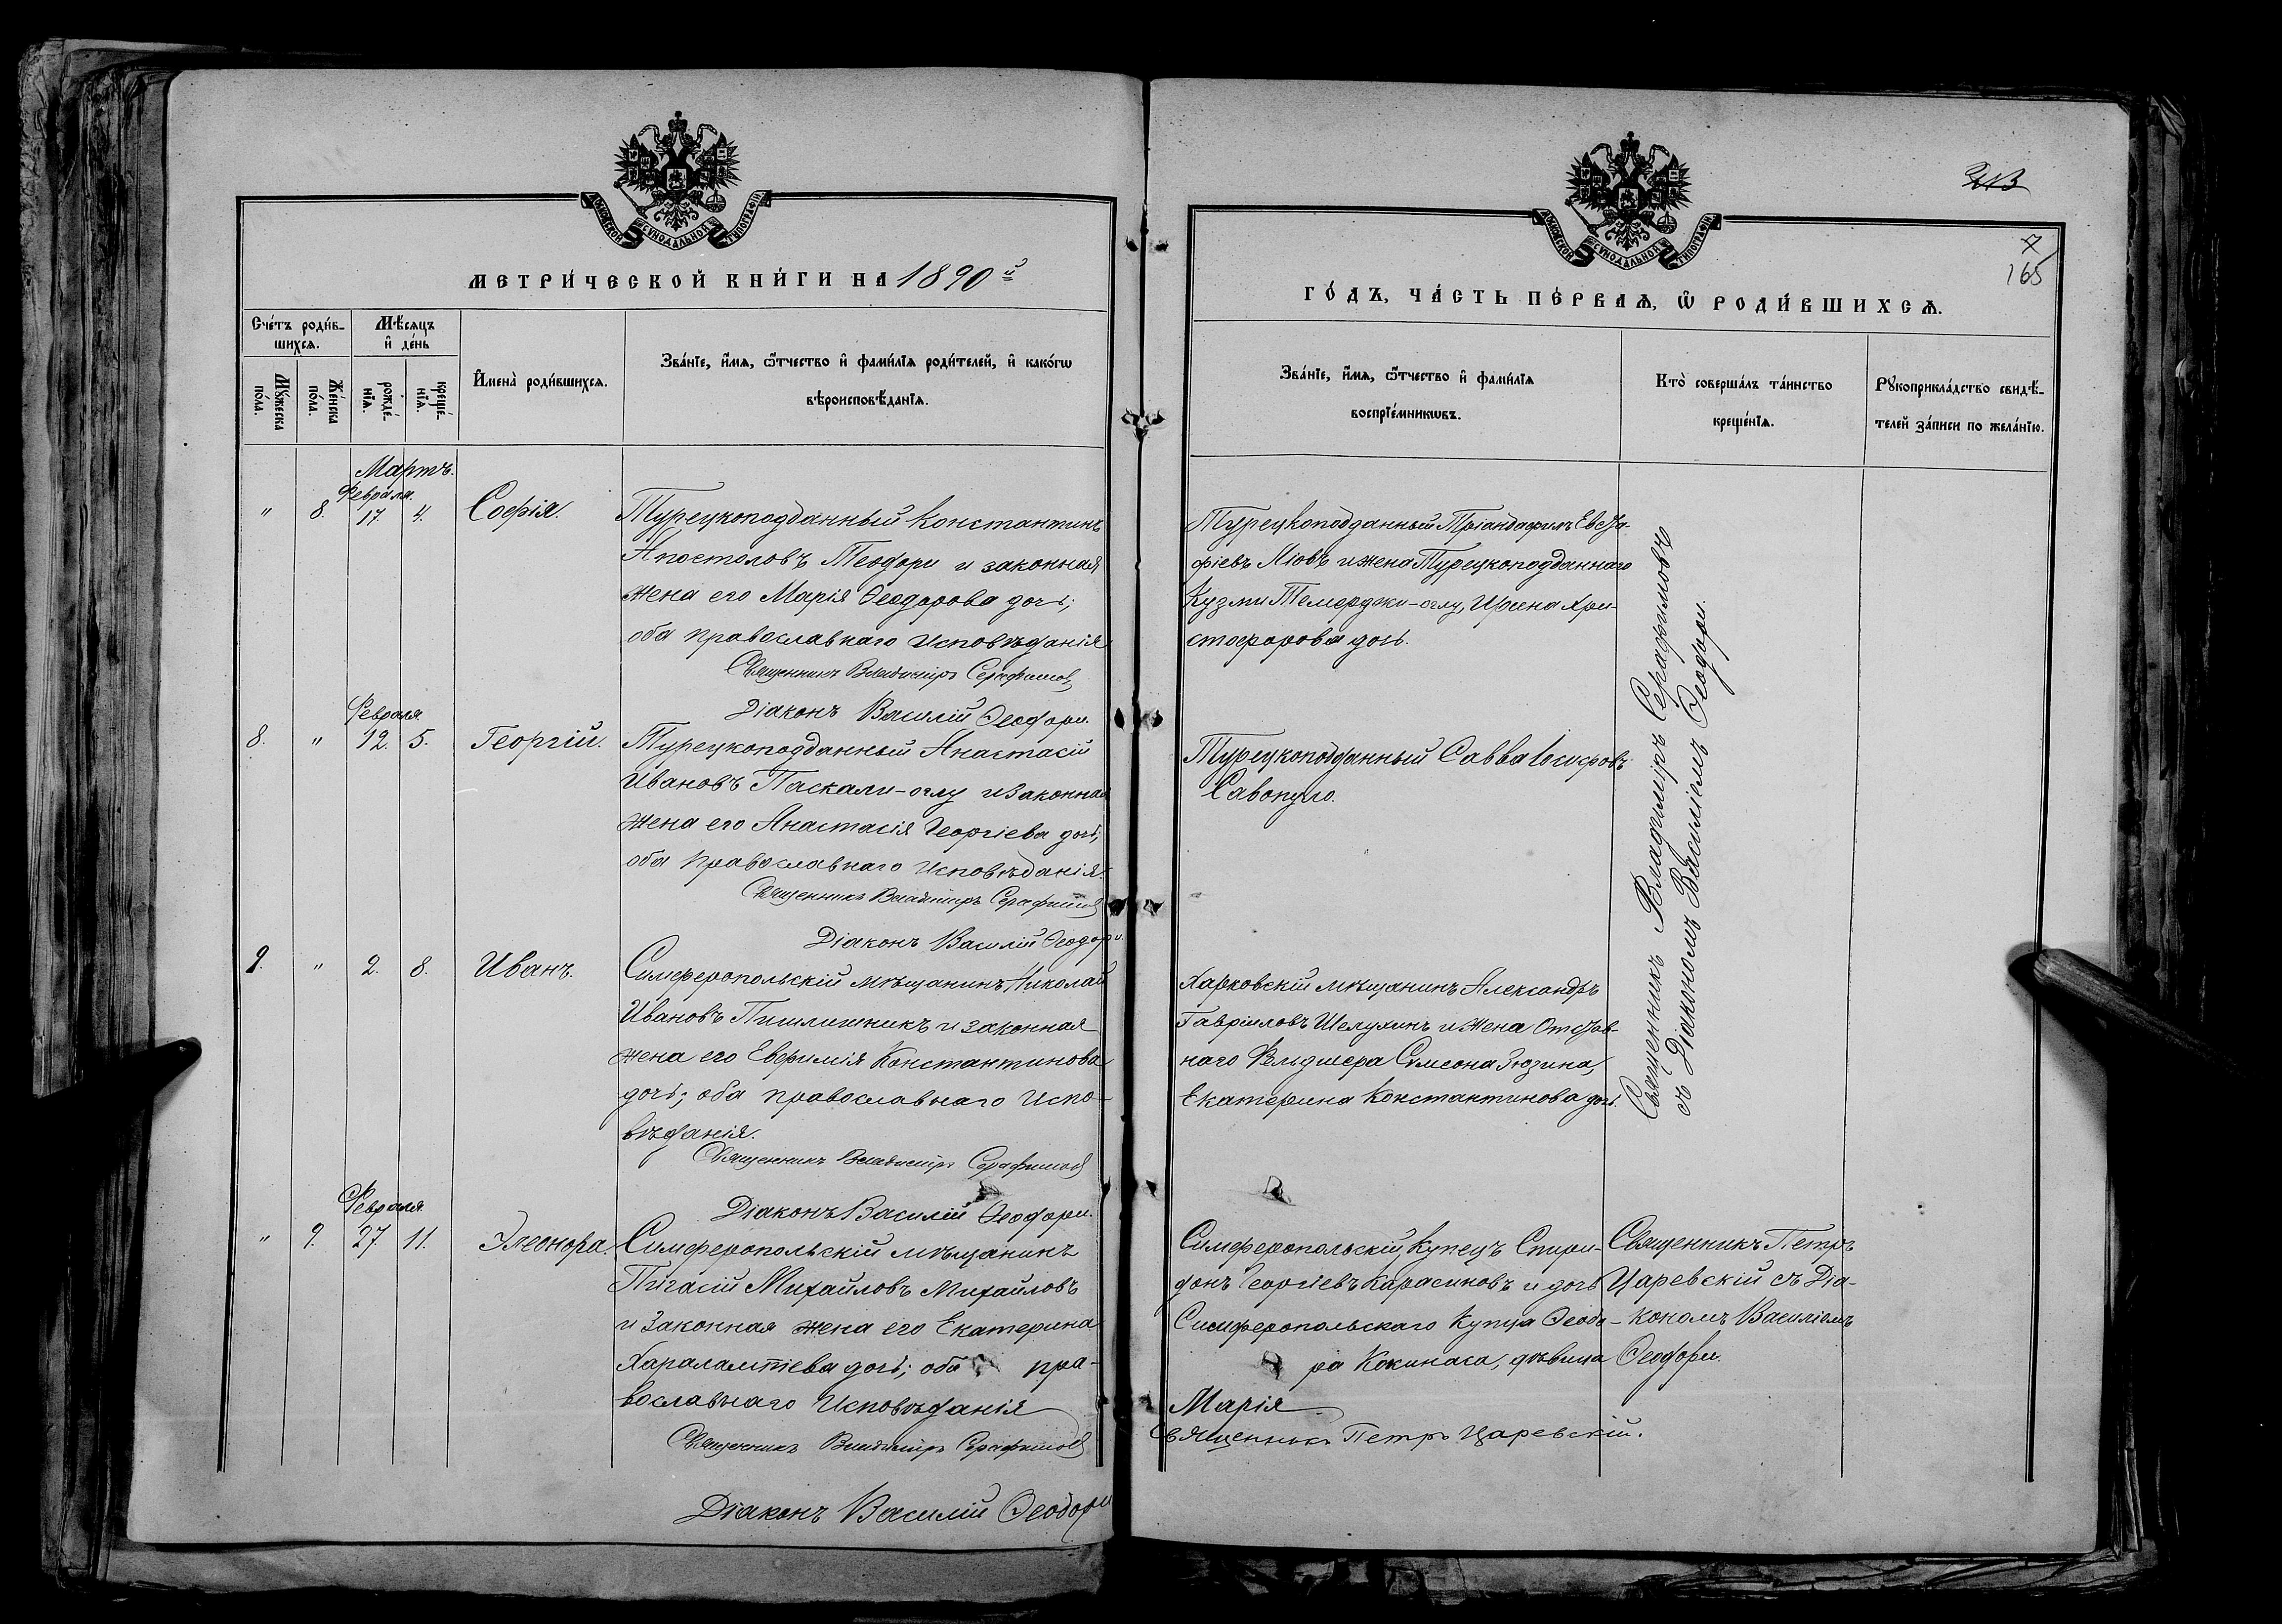 МОСКОВСКОЙ СѴНОДАЛЬНОЙ ТИПОГРАФІИ
МЕТРИ́ЧЕСКОЙ КНИ́ГИ НА 1890й
Сче́тъ роди́в-
шихсѧ.
Мѣ́сѧцъ
и҆ де́нь
Мꙋ́жеска
по́ла.
Же́нска
по́ла.
рожде́-
нїѧ.
креще́-
нїѧ.
И҆мена̀ роди́вшихсѧ.
Зва́нїе, и҆́мѧ, ѻ҆́тчество и҆ фами́лїѧ роди́телей, и҆ како́гѡ
вѣроисповѣ́данїѧ.
Мартъ.
Февраля.
" 8. 17. 4. Софія.
Турецкоподданный Константинъ
Апостоловъ Теодори и законная
жена его Марія Ѳеодорова дочь;
оба православнаго исповѣданія
Священникъ Владиміръ Серафимовъ
Діаконъ Василій Ѳеодори.
Февраля
8. " 12. 5. Георгій.
Турецкоподданный Анастасій
Ивановъ Паскали-оглу и законная
жена его Анастасія Георгіева дочь;
оба православнаго исповѣданія.
Священникъ Владиміръ Серафимовъ
Діаконъ Василій Ѳеодори.
9. " 2. 8. Иванъ.
Симферопольскій мѣщанинъ Николай
Ивановъ Пшиличникъ и законная
жена его Евфимія Константинова
дочь; оба православнаго испо-
вѣданія.
Священникъ Владиміръ Серафимовъ
Діаконъ Василій Ѳеодори.
Февраля
" 9. 27 11. Элеонора.
Симферопольскій мѣщанинъ
Пигасій Михайловъ Михайловъ
и законная жена его Екатерина
Харалампіева дочь; оба пра-
вославнаго исповѣданія
Священникъ Владиміръ Серафимовъ
Діаконъ Василій Ѳеодори
213
7
165
МОСКОВСКОЙ СѴНОДАЛЬНОЙ ТИПОГРАФІИ
ГО́ДЪ, ЧА́СТЬ ПЕ́РВАѦ, Ѡ҆ РОДИ́ВШИХСѦ.
Зва́нїе, и҆́мѧ, ѻ҆́тчество и҆ фами́лїѧ
воспрїе́мникѡвъ.
Кто̀ соверша́лъ та́инство
креще́нїѧ.
Рꙋкоприкла́дство свидѣ́-
телей за́писи по жела́нїю.
Турецкоподданный Тріандафилъ Евста-
фіевъ Ліовъ и жена Турецкоподданнаго
Кузми Темерджи-оглу, Ирина Хри-
стофорова дочь.
Турецкоподданный Савва Іосифовъ
Савопуло.
Харковскій мѣщанинъ Александръ
Гавріиловъ Шелухинъ и жена Отстав-
наго Фельдшера Симеона Зюзина,
Екатерина Константинова дочь.
Священникъ Владиміръ Серафимовъ
съ Діакономъ Василіемъ Ѳеодори.
Симферопольскій купецъ Спири-
донъ Георгіевъ Карасиновъ и дочь
Симферопольскаго купца Ѳеодо-
ра Кокинаса, дѣвица
Марія
Священникъ Петръ Царевскій.
Священникъ Петръ
Царевскій съ Діа-
кономъ Василіемъ
Ѳеодори.